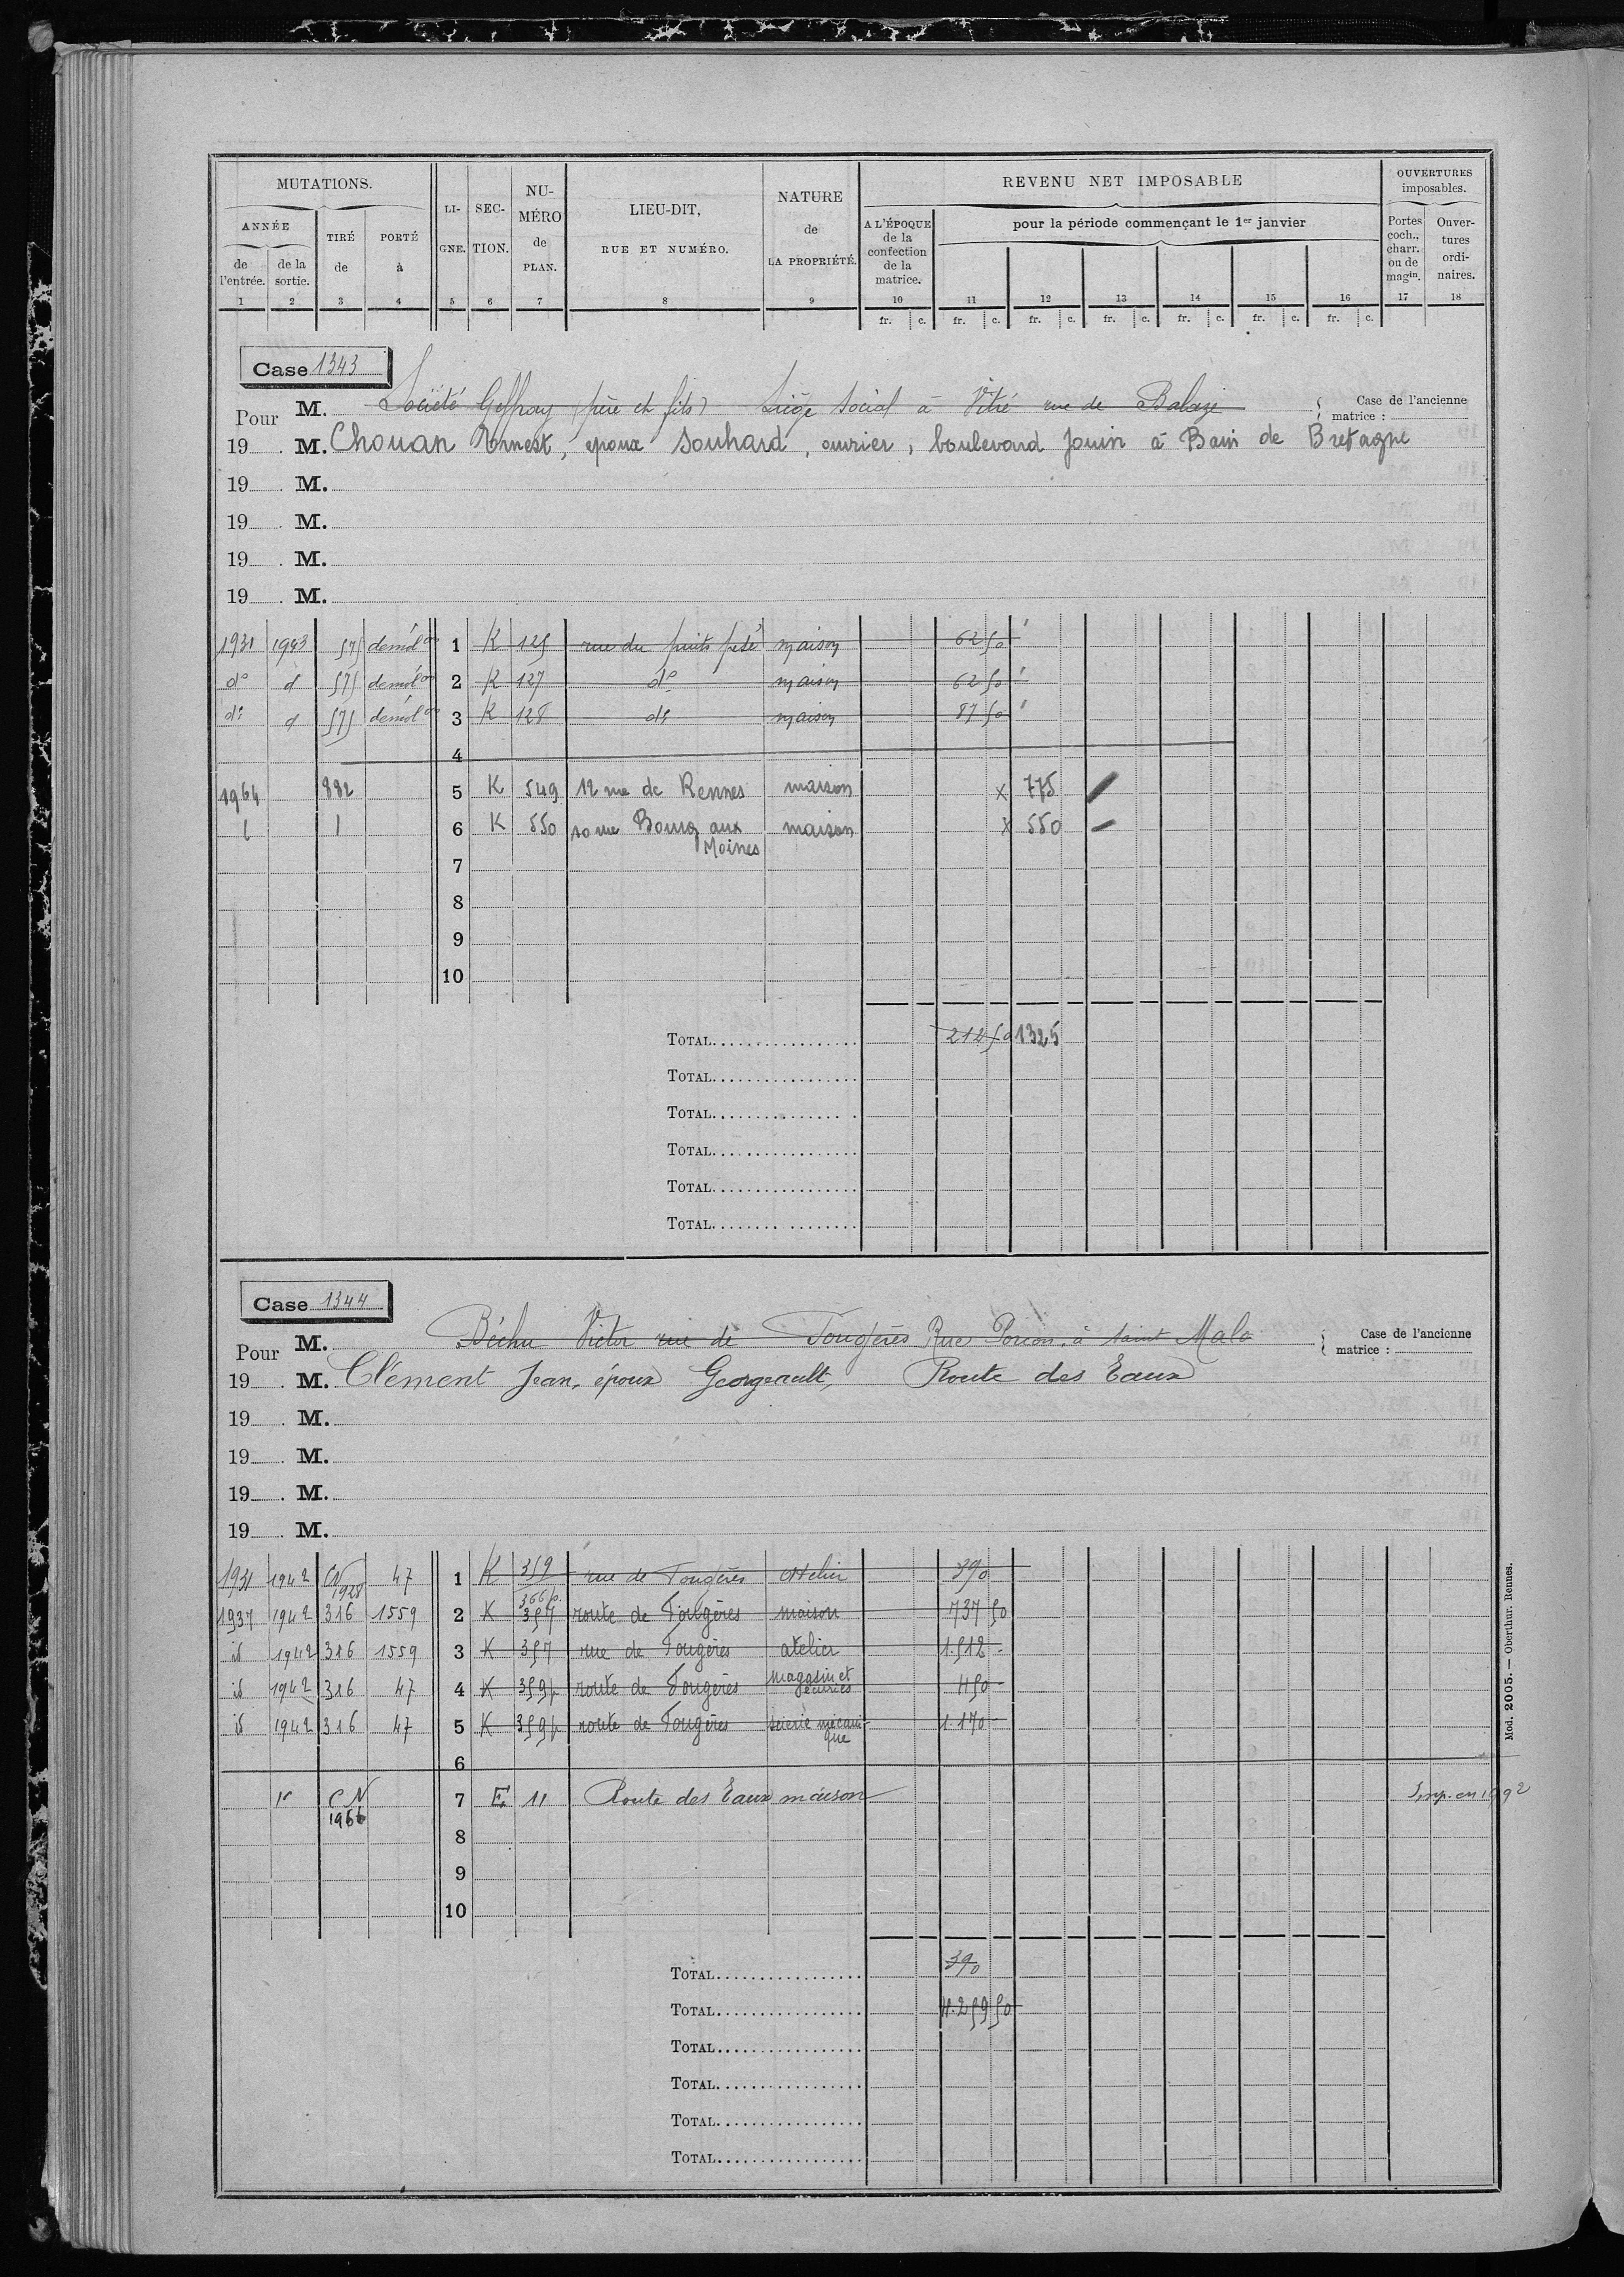 MUTATIONS. LI- SEC- NU- LIEU-DIT, NATURE REVENU NET IMPOSABLE OUVERTURES imposables.
ANNÉE TIRÉ PORTÉ GNE. TION. MÉRO RUE ET NUMÉRO. de A L'ÉPOQUE pour la période commençant le 1er janvier Portes Ouver-
de l'entrée. de la sortie. de à de PLAN. LA PROPRIÉTÉ. de la confection de la matrice. coch., charr. ou de magin. tures ordi- naires.
1 2 3 4 5 6 7 8 9 10 11 12 13 14 15 16 17 18
fr. c. fr. c. fr. c. fr. c. fr. c. fr. c. fr. c.
Case 1343
Pour M. Société Geffroy (père et fils) Siège Social à Vitré rue de Balazé Case de l'ancienne matrice :
19 . M. Chouan Ernest, epoux Souhard, ouvrier, boulevard Jouin à Bain de Bretagne
19 . M.
19 . M.
19 . M.
19 . M.
1931 1943 575 démolon 1 K 125 rue du puits pesé maison 62 50
do d 575 démolon 2 K 127 do maison 62 50
do d 575 démolon 3 K 128 do maison 87 50
4
1964 882 5 K 549 12 rue de Rennes maison x 775
6 K 550 10 rue Bourg aux Moines maison x 550
7
8
9
10
TOTAL 212 50 1325
TOTAL
TOTAL
TOTAL
TOTAL
TOTAL
Case 1344
Pour M. Béchu Victor rue de Fougères Rue Porcon, à Saint Malo Case de l'ancienne matrice :
19 . M. Clément Jean, époux Georgeault, Route des Eaux
19 . M.
19 . M.
19 . M.
19 . M.
1931 1942 CN 1928 47 1 K 359 rue de Fougères atelier 390
1937 1942 316 1559 2 K 366p. 357 route de Fougères maison 737 50
id 1942 316 1559 3 K 357 rue de Fougères atelier 1.512 -
id 1942 316 47 4 K 359p route de Fougères magasin et écuries 450 -
id 1942 316 47 5 K 359p route de Fougères scierie mécanique 1.170 -
6
CN 1966 7 E 11 Route des Eaux maison Imp. en 1992
8
9
10
TOTAL 390
TOTAL 4.259 50
TOTAL
TOTAL
TOTAL
TOTAL
Mod. 2005. — Oberthur. Rennes.